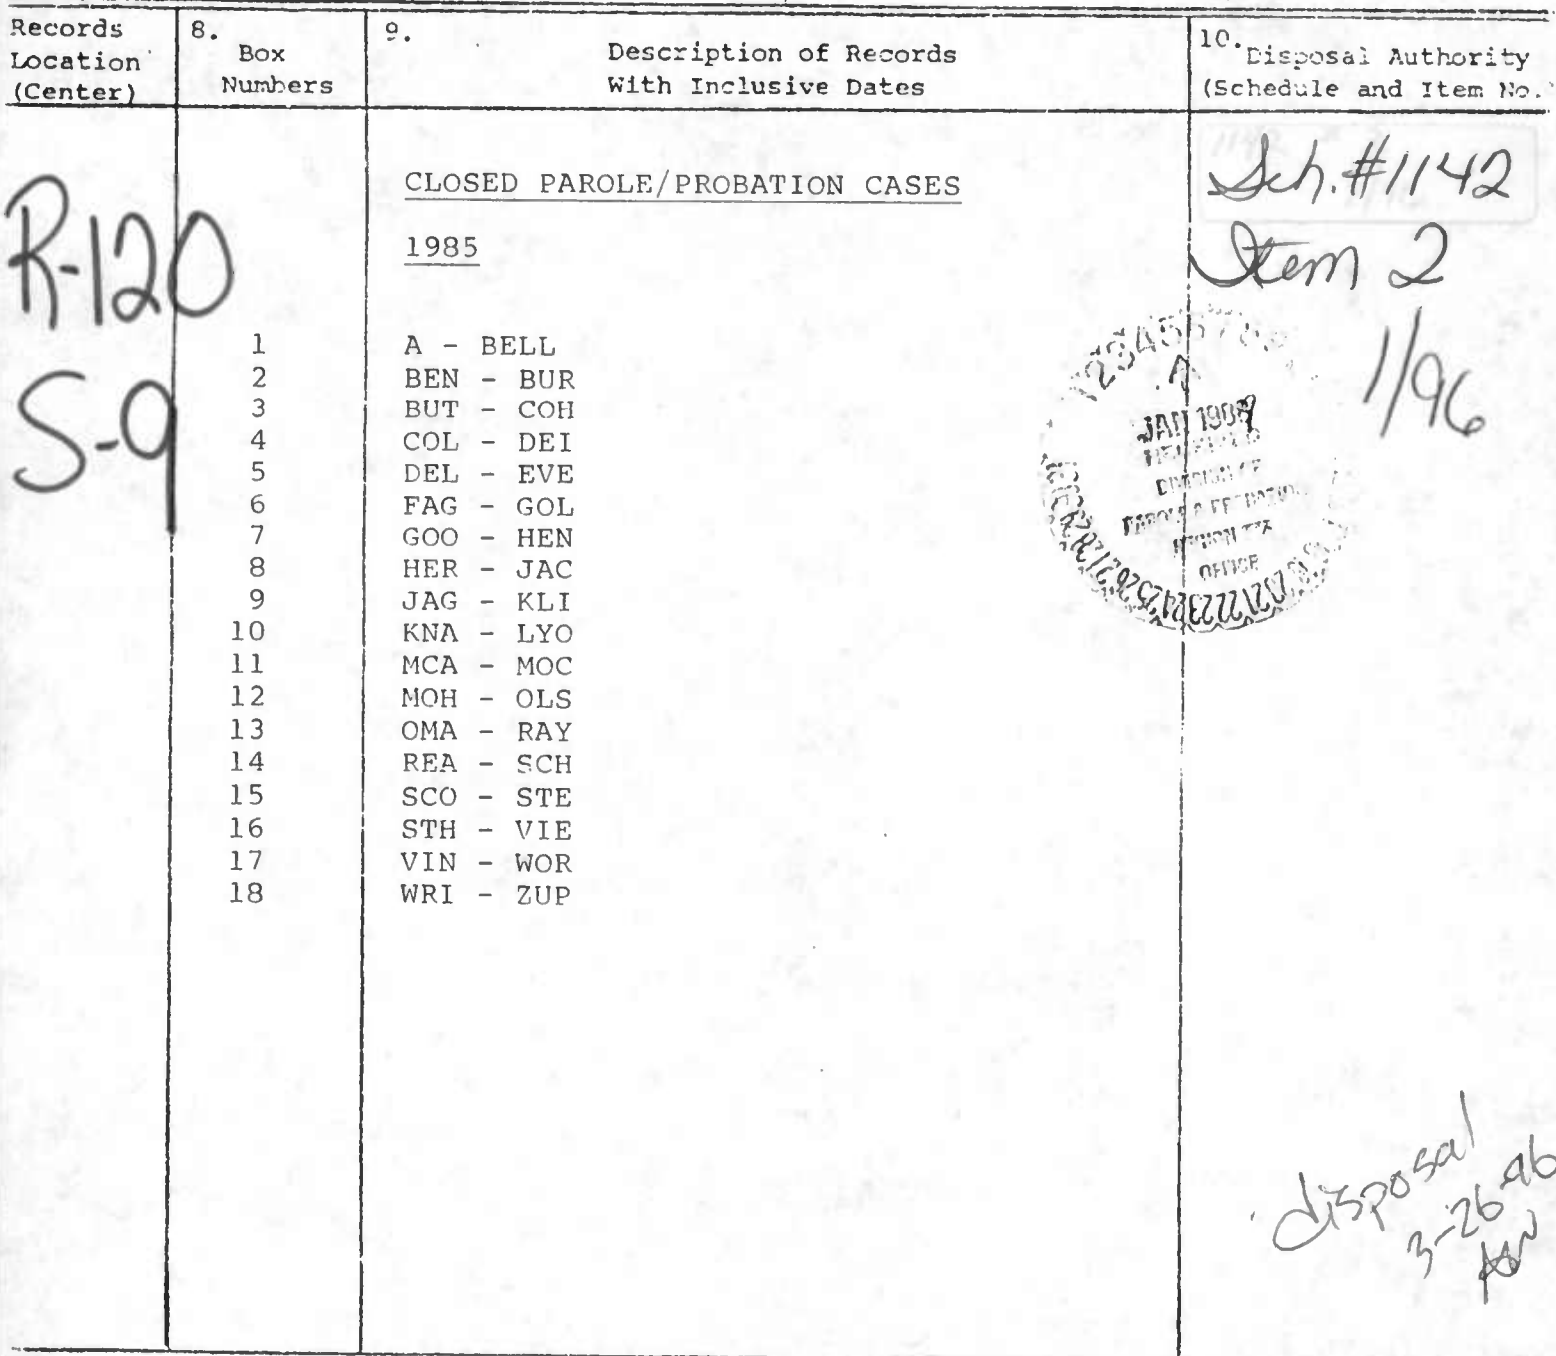 Records
Location
(Center)
8.
Box
Numbers
9.
Description of Records
With Inclusive Dates
10. Disposal Authority
(Schedule and Item No.
R-120
S-9
CLOSED PAROLE/PROBATION CASES
1985
1 A - BELL
2 BEN - BUR
3 BUT - COH
4 COL - DEI
5 DEL - EVE
6 FAG - GOL
7 GOO - HEN
8 HER - JAC
9 JAG - KLI
10 KNA - LYO
11 MCA - MOC
12 MOH - OLS
13 OMA - RAY
14 REA - SCH
15 SCO - STE
16 STH - VIE
17 VIN - WOR
18 WRI - ZUP
Sch. #1142
Item 2
1/96
JAN
DIVISION OF
PAROLE & PROBATION
OFFICE
disposal
3-26-96